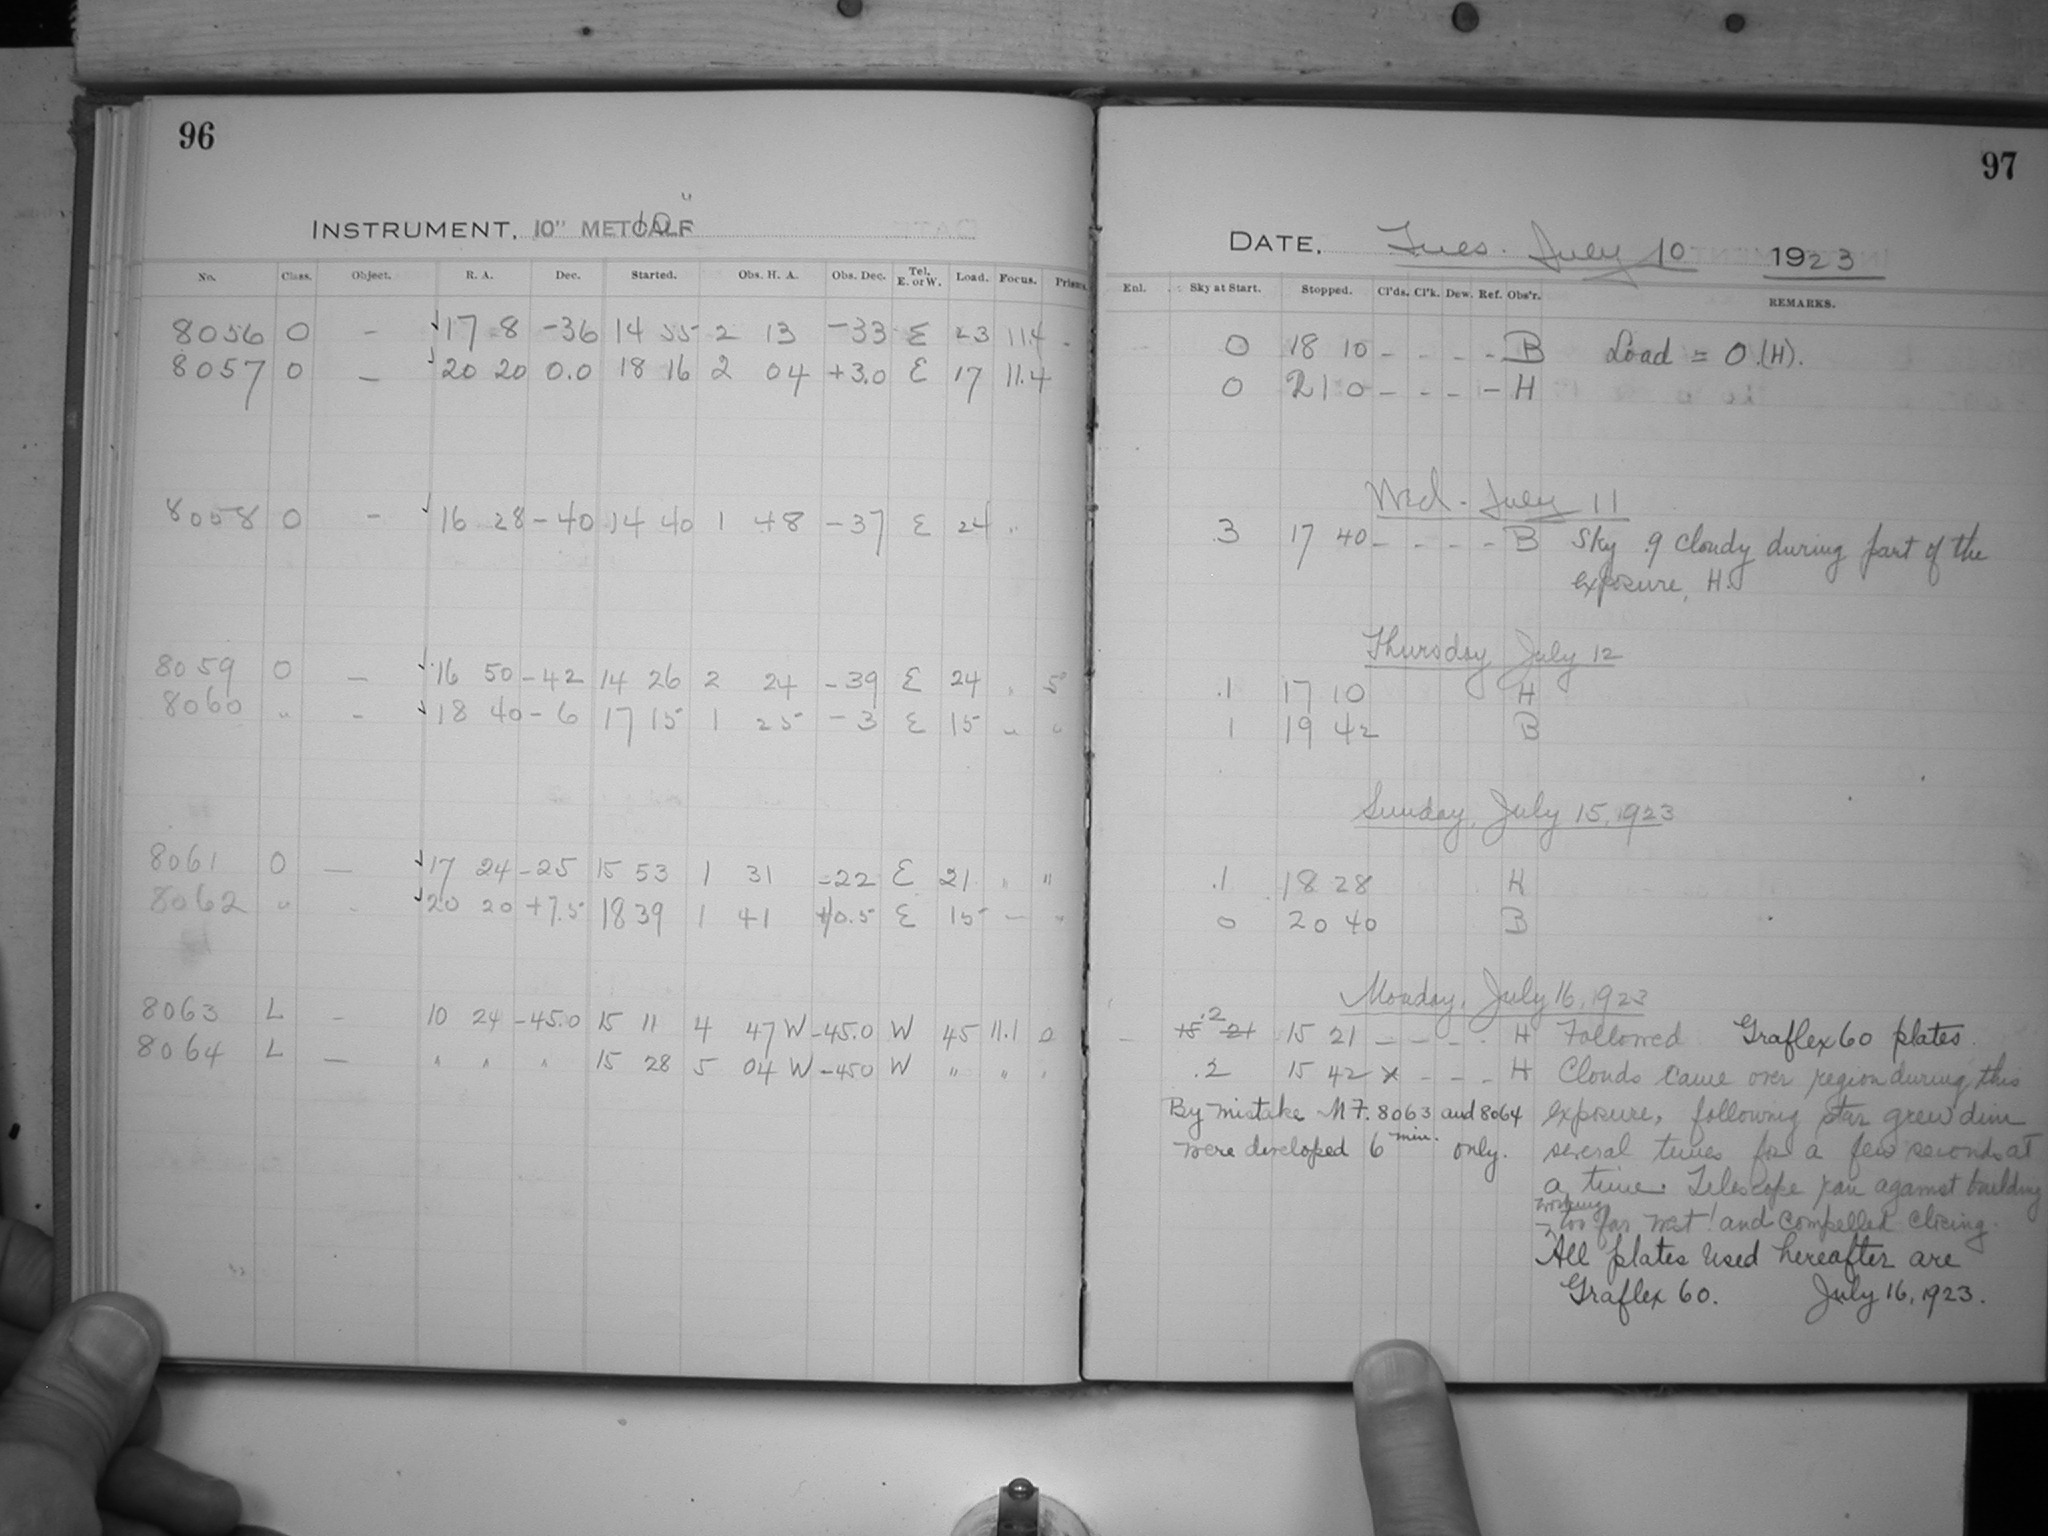 96
INSTRUMENT, 10" METCALF 10"
No. Class. Object. R. A. Dec. Started. Obs. H. A. Obs. Dec. Tel. E. or W. Load. Focus. Prism.
8056 O - ✓ 17 8 -36 14 55 2 13 -33 E 23 11.4 -
8057 O - ✓ 20 20 0.0 18 16 2 04 +3.0 E 17 11.4
8058 O - ✓ 16 28 -40 14 40 1 48 -37 E 24 "
8059 O - ✓ 16 50 -42 14 26 2 24 -39 E 24 "
8060 " - ✓ 18 40 -6 17 15 1 25 -3 E 15 " "
8061 O - ✓ 17 24 -25 15 53 1 31 -22 E 21 " "
8062 " - ✓ 20 20 +7.5 18 39 1 41 +10.5 E 15 - "
8063 L - 10 24 -45.0 15 11 4 47 W -45.0 W 45 11.1 0
8064 L - " " " 15 28 5 04 W -45.0 W " " "
97
DATE, Tues. July 10 1923
Enl. Sky at Start. Stopped. Cl'ds. Cl'k. Dew. Ref. Obs'r. REMARKS.
0 18 10 - - - - B Load = 0.(H).
0 21 0 - - - - H
Wed. July 11
.3 17 40 - - - - B Sky .9 cloudy during part of the
exposure, H.
Thursday July 12
.1 17 10 H
1 19 42 B
Sunday, July 15, 1923
.1 18 28 H
0 20 40 B
Monday, July 16, 1923
- 15 21 .2 15 21 - - - - H Followed Graflex 60 plates.
.2 15 42 x - - - H Clouds came over region during this
By mistake MF. 8063 and 8064 exposure, following star grew dim
were developed 6 min. only. several times for a few seconds at
a time. Telescope ran against building
working too far west! and compelled closing.
All plates used hereafter are
Graflex 60. July 16, 1923.